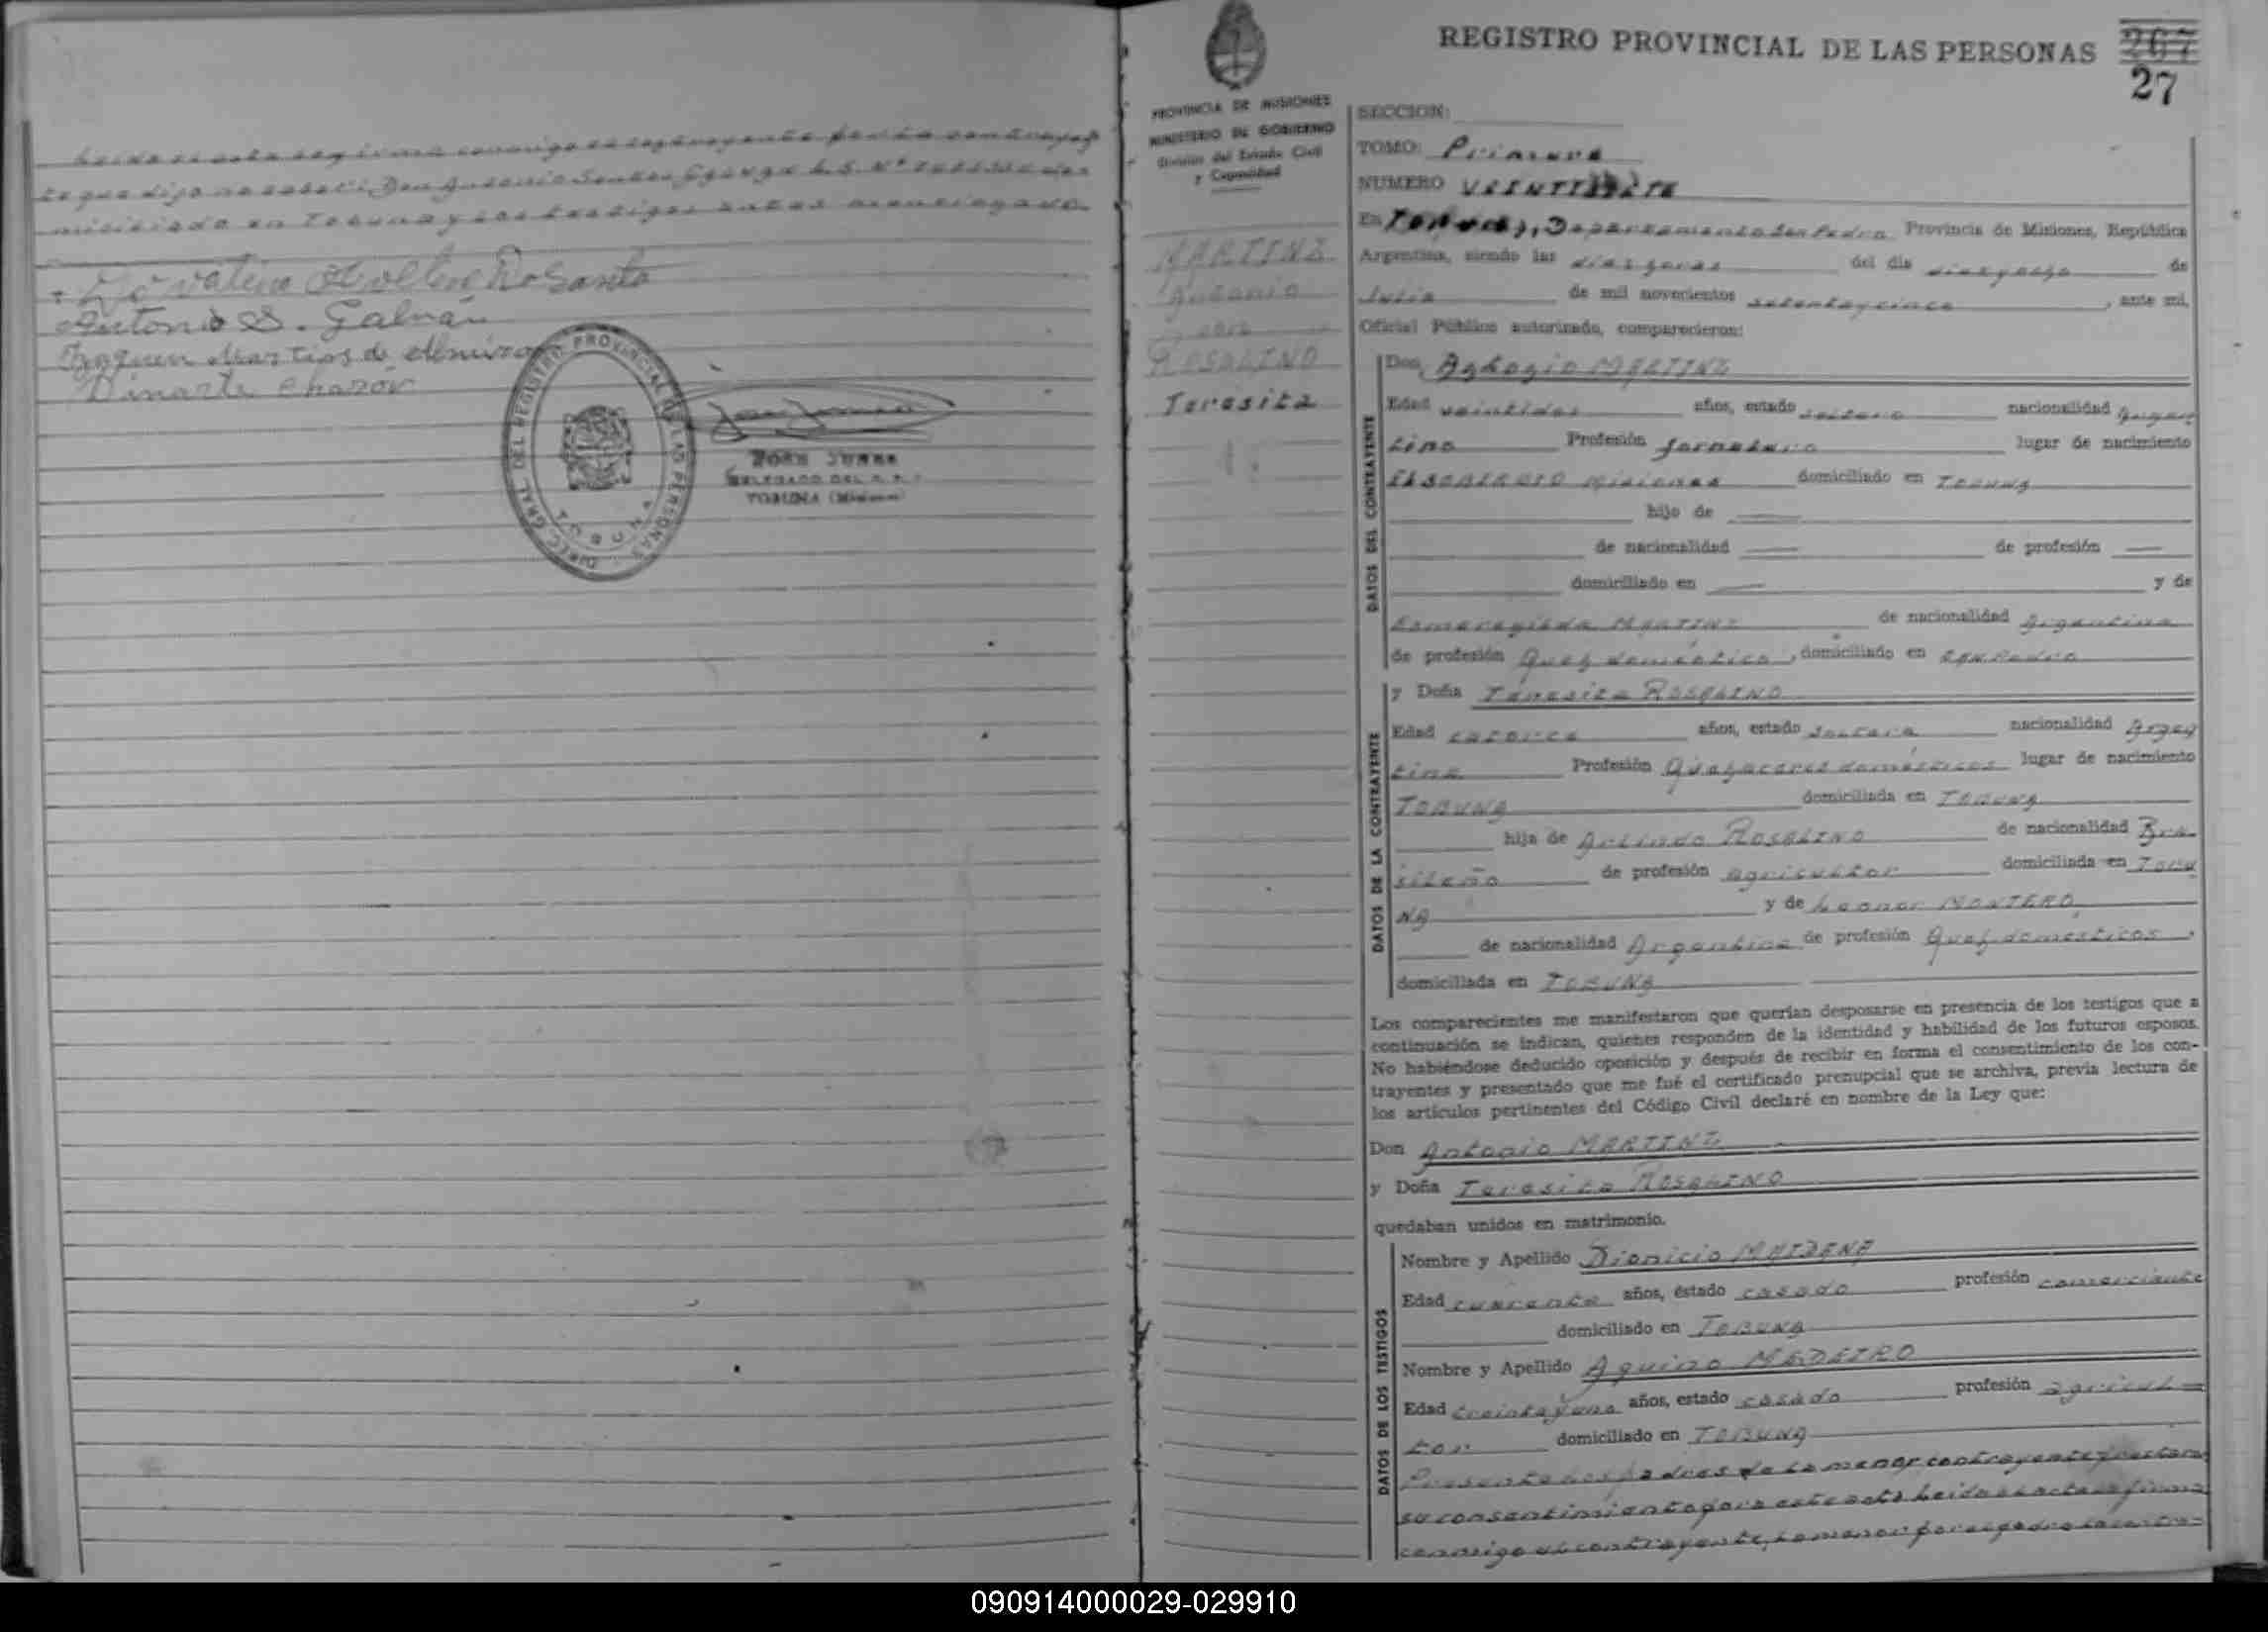 Leida el acta la firma conmigo el contrayente por la contrayen
te que dijo no saber: Don Antonio Santos Galván
miciliado en Tobuna y los testigos antes mencionados.
Antonio S. Galván
Dinarte Chazon
DIREC. GRAL. DEL REGISTRO PROVINCIAL DE LAS PERSONAS
TOBUNA
DELEGADO DEL R. P.
TOBUNA (Misiones)
REGISTRO PROVINCIAL DE LAS PERSONAS
267
27
PROVINCIA DE MISIONES
MINISTERIO DE GOBIERNO
División del Estado Civil
y Capacidad
MARTINZ
Antonio
con
ROSALINO
Teresita
SECCION:
TOMO: Primero
NUMERO VEINTISIETE
En TOBUNA, Departamento San Pedro Provincia de Misiones, República
Argentina, siendo las diez horas del día dieciocho de
Julio de mil novecientos setenta y cinco, ante mí,
Oficial Público autorizado, comparecieron:
DATOS DEL CONTRAYENTE
Don Antonio MARTINZ
Edad veintidos años, estado soltero nacionalidad Argen
tino Profesión Jornalero lugar de nacimiento
ELSOBERBIO Misiones domiciliado en TOBUNA
hijo de
de nacionalidad de profesión
domiciliado en y de
Esmeregilda MARTINZ de nacionalidad Argentina
de profesión Queh. doméstico, domiciliado en SAN Pedro
DATOS DE LA CONTRAYENTE
y Doña Teresita ROSALINO
Edad catorce años, estado soltera nacionalidad Argen
tina Profesión Quehaceres domésticos lugar de nacimiento
TOBUNA domiciliada en TOBUNA
hija de Arlindo ROSALINO de nacionalidad Bra
sileño de profesión agricultor domiciliada en TOBU
NA y de Leonor MONTERO
de nacionalidad Argentina de profesión Queh. domésticos.
domiciliada en TOBUNA
Los comparecientes me manifestaron que querían desposarse en presencia de los testigos que a
continuación se indican, quienes responden de la identidad y habilidad de los futuros esposos.
No habiéndose deducido oposición y después de recibir en forma el consentimiento de los con-
trayentes y presentado que me fué el certificado prenupcial que se archiva, previa lectura de
los artículos pertinentes del Código Civil declaré en nombre de la Ley que:
Don Antonio MARTINZ
y Doña Teresita ROSALINO
quedaban unidos en matrimonio.
DATOS DE LOS TESTIGOS
Nombre y Apellido Dionicio MAIDANA
Edad cuarenta años, estado casado profesión comerciante
domiciliado en TOBUNA
Nombre y Apellido Aquino MEDEIRO
Edad treinta y uno años, estado casado profesión agricul
tor domiciliado en TOBUNA
Presente los padres de la menor contrayente prestan
su consentimiento para este acto Leida el acta la firma
conmigo el contrayente, la menor por el padre
090914000029-029910